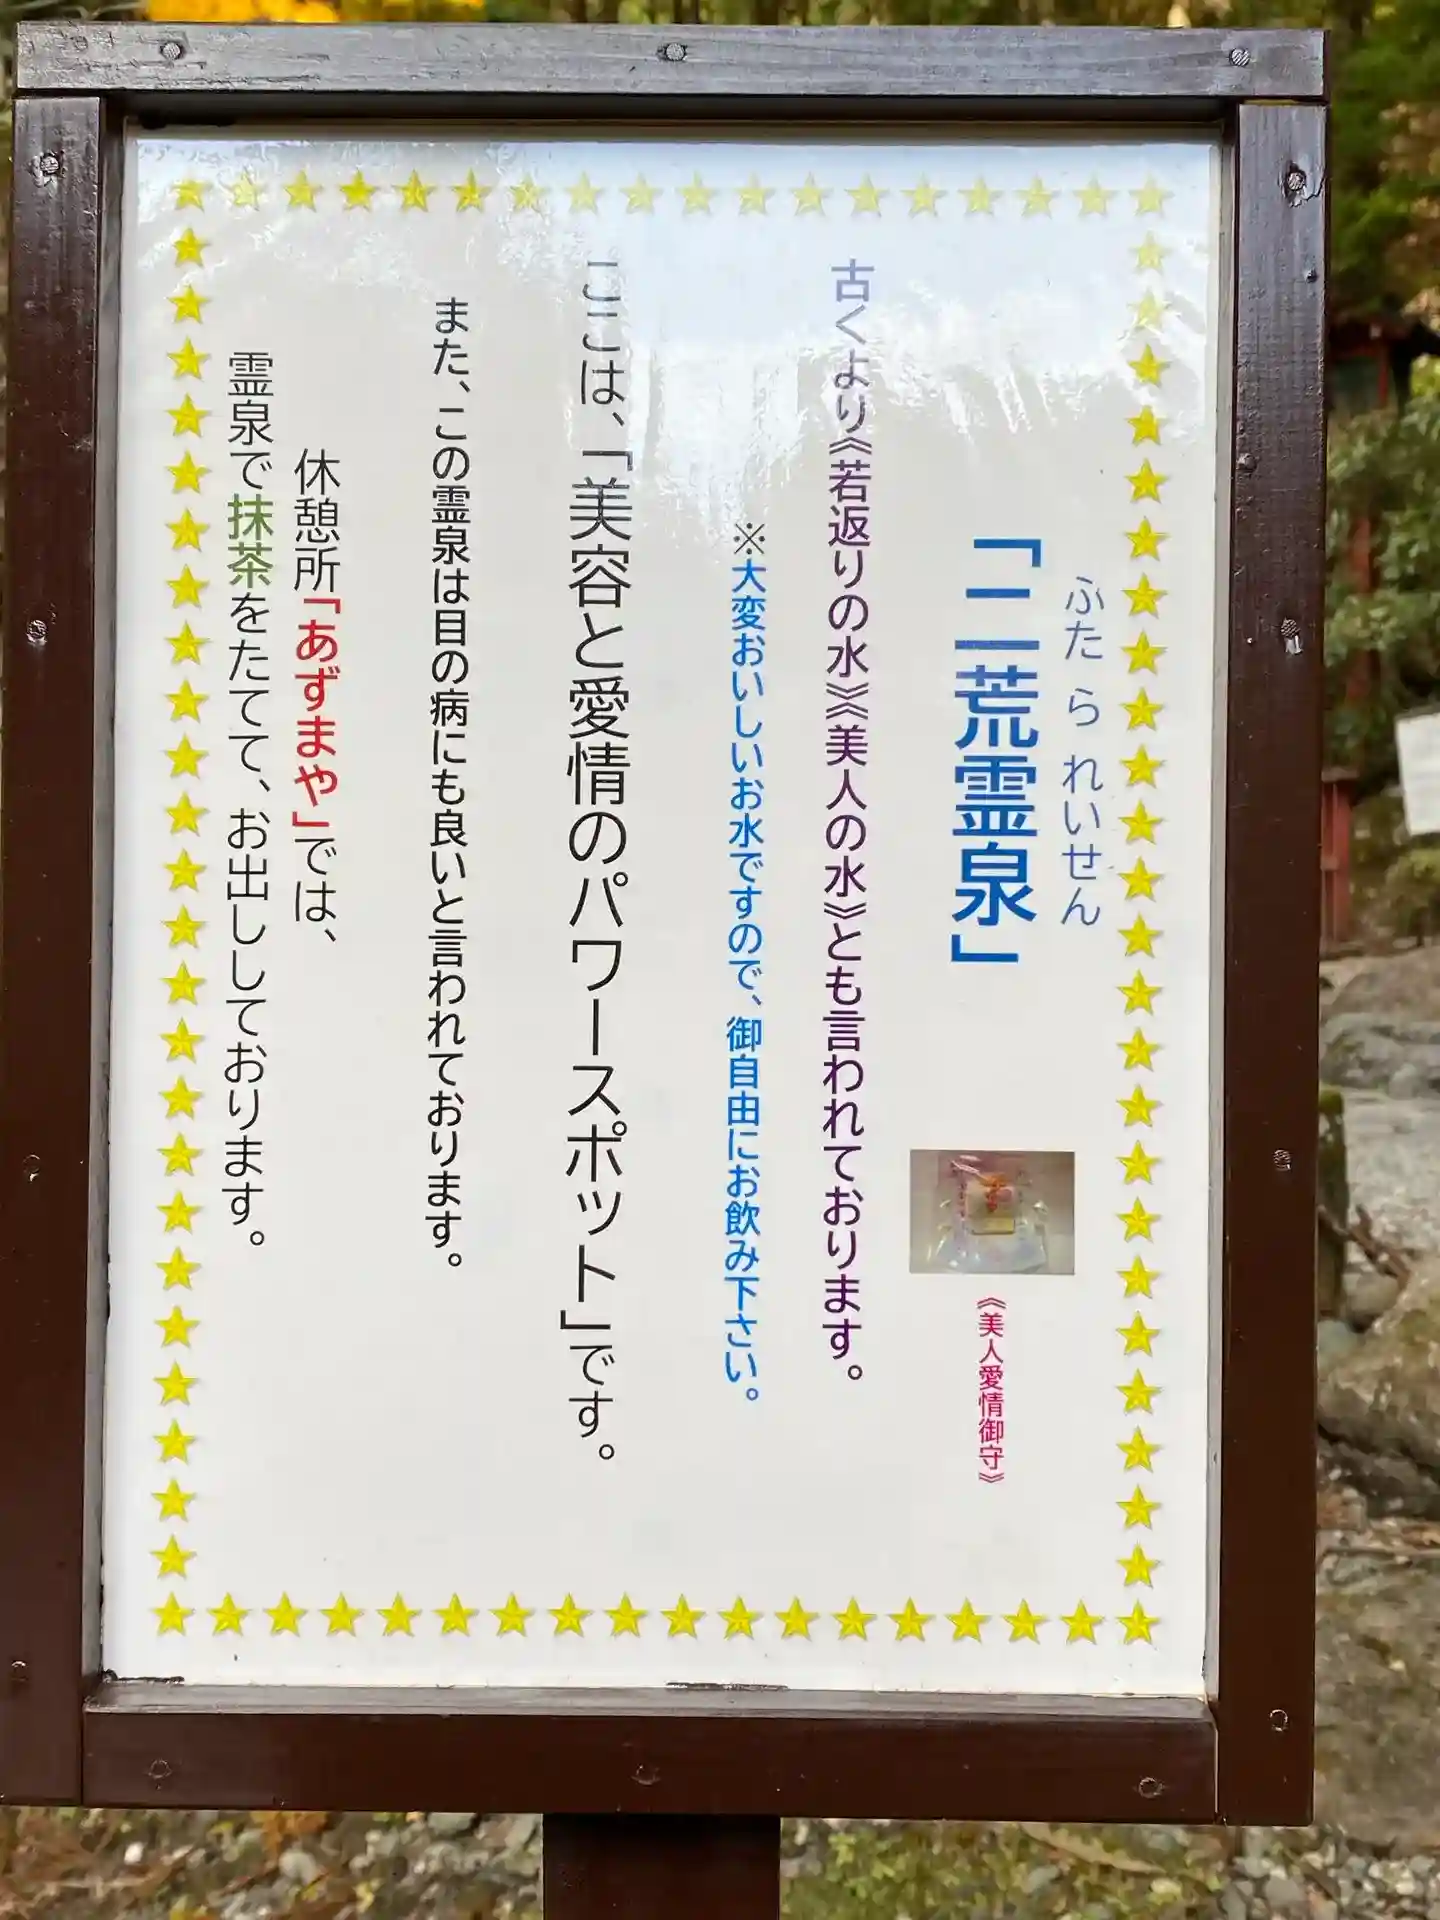 ふた ら れいせん
「二荒霊泉」
《美人愛情御守》
古くより《若返りの水》《美人の水》とも言われております。
※大変おいしいお水ですので、御自由にお飲み下さい。
ここは、「美容と愛情のパワースポット」です。
また、この霊泉は目の病にも良いと言われております。
休憩所「あずまや」では、
霊泉で抹茶をたてて、お出ししております。